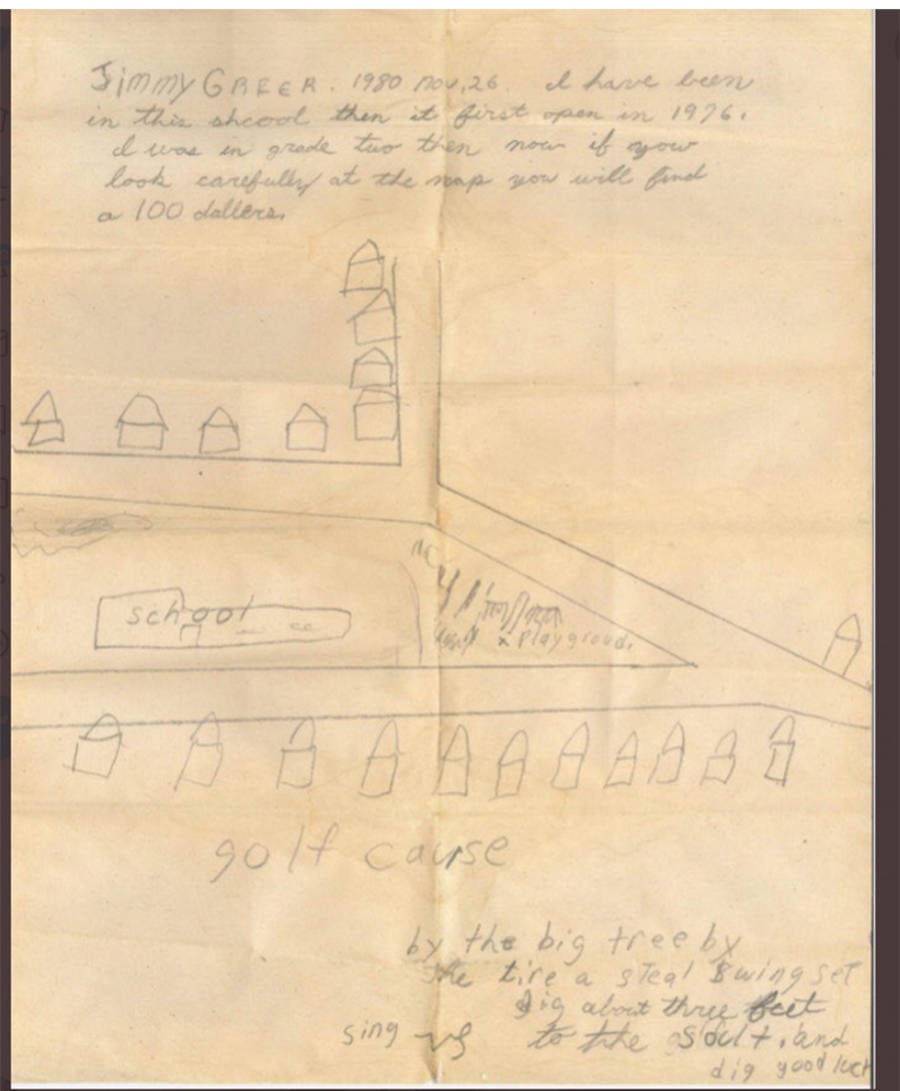 Jimmy GREER. 1980 nov, 26. I have been
in this shcool then it first open in 1976.
I was in grade two then now if yow
look carefully at the map you will find
a 100 dallers.
school
x Playgroud.
golf cause
by the big tree by
the tire a steal Swing set
dig about three feet
to the soult, and
dig good luck
sing